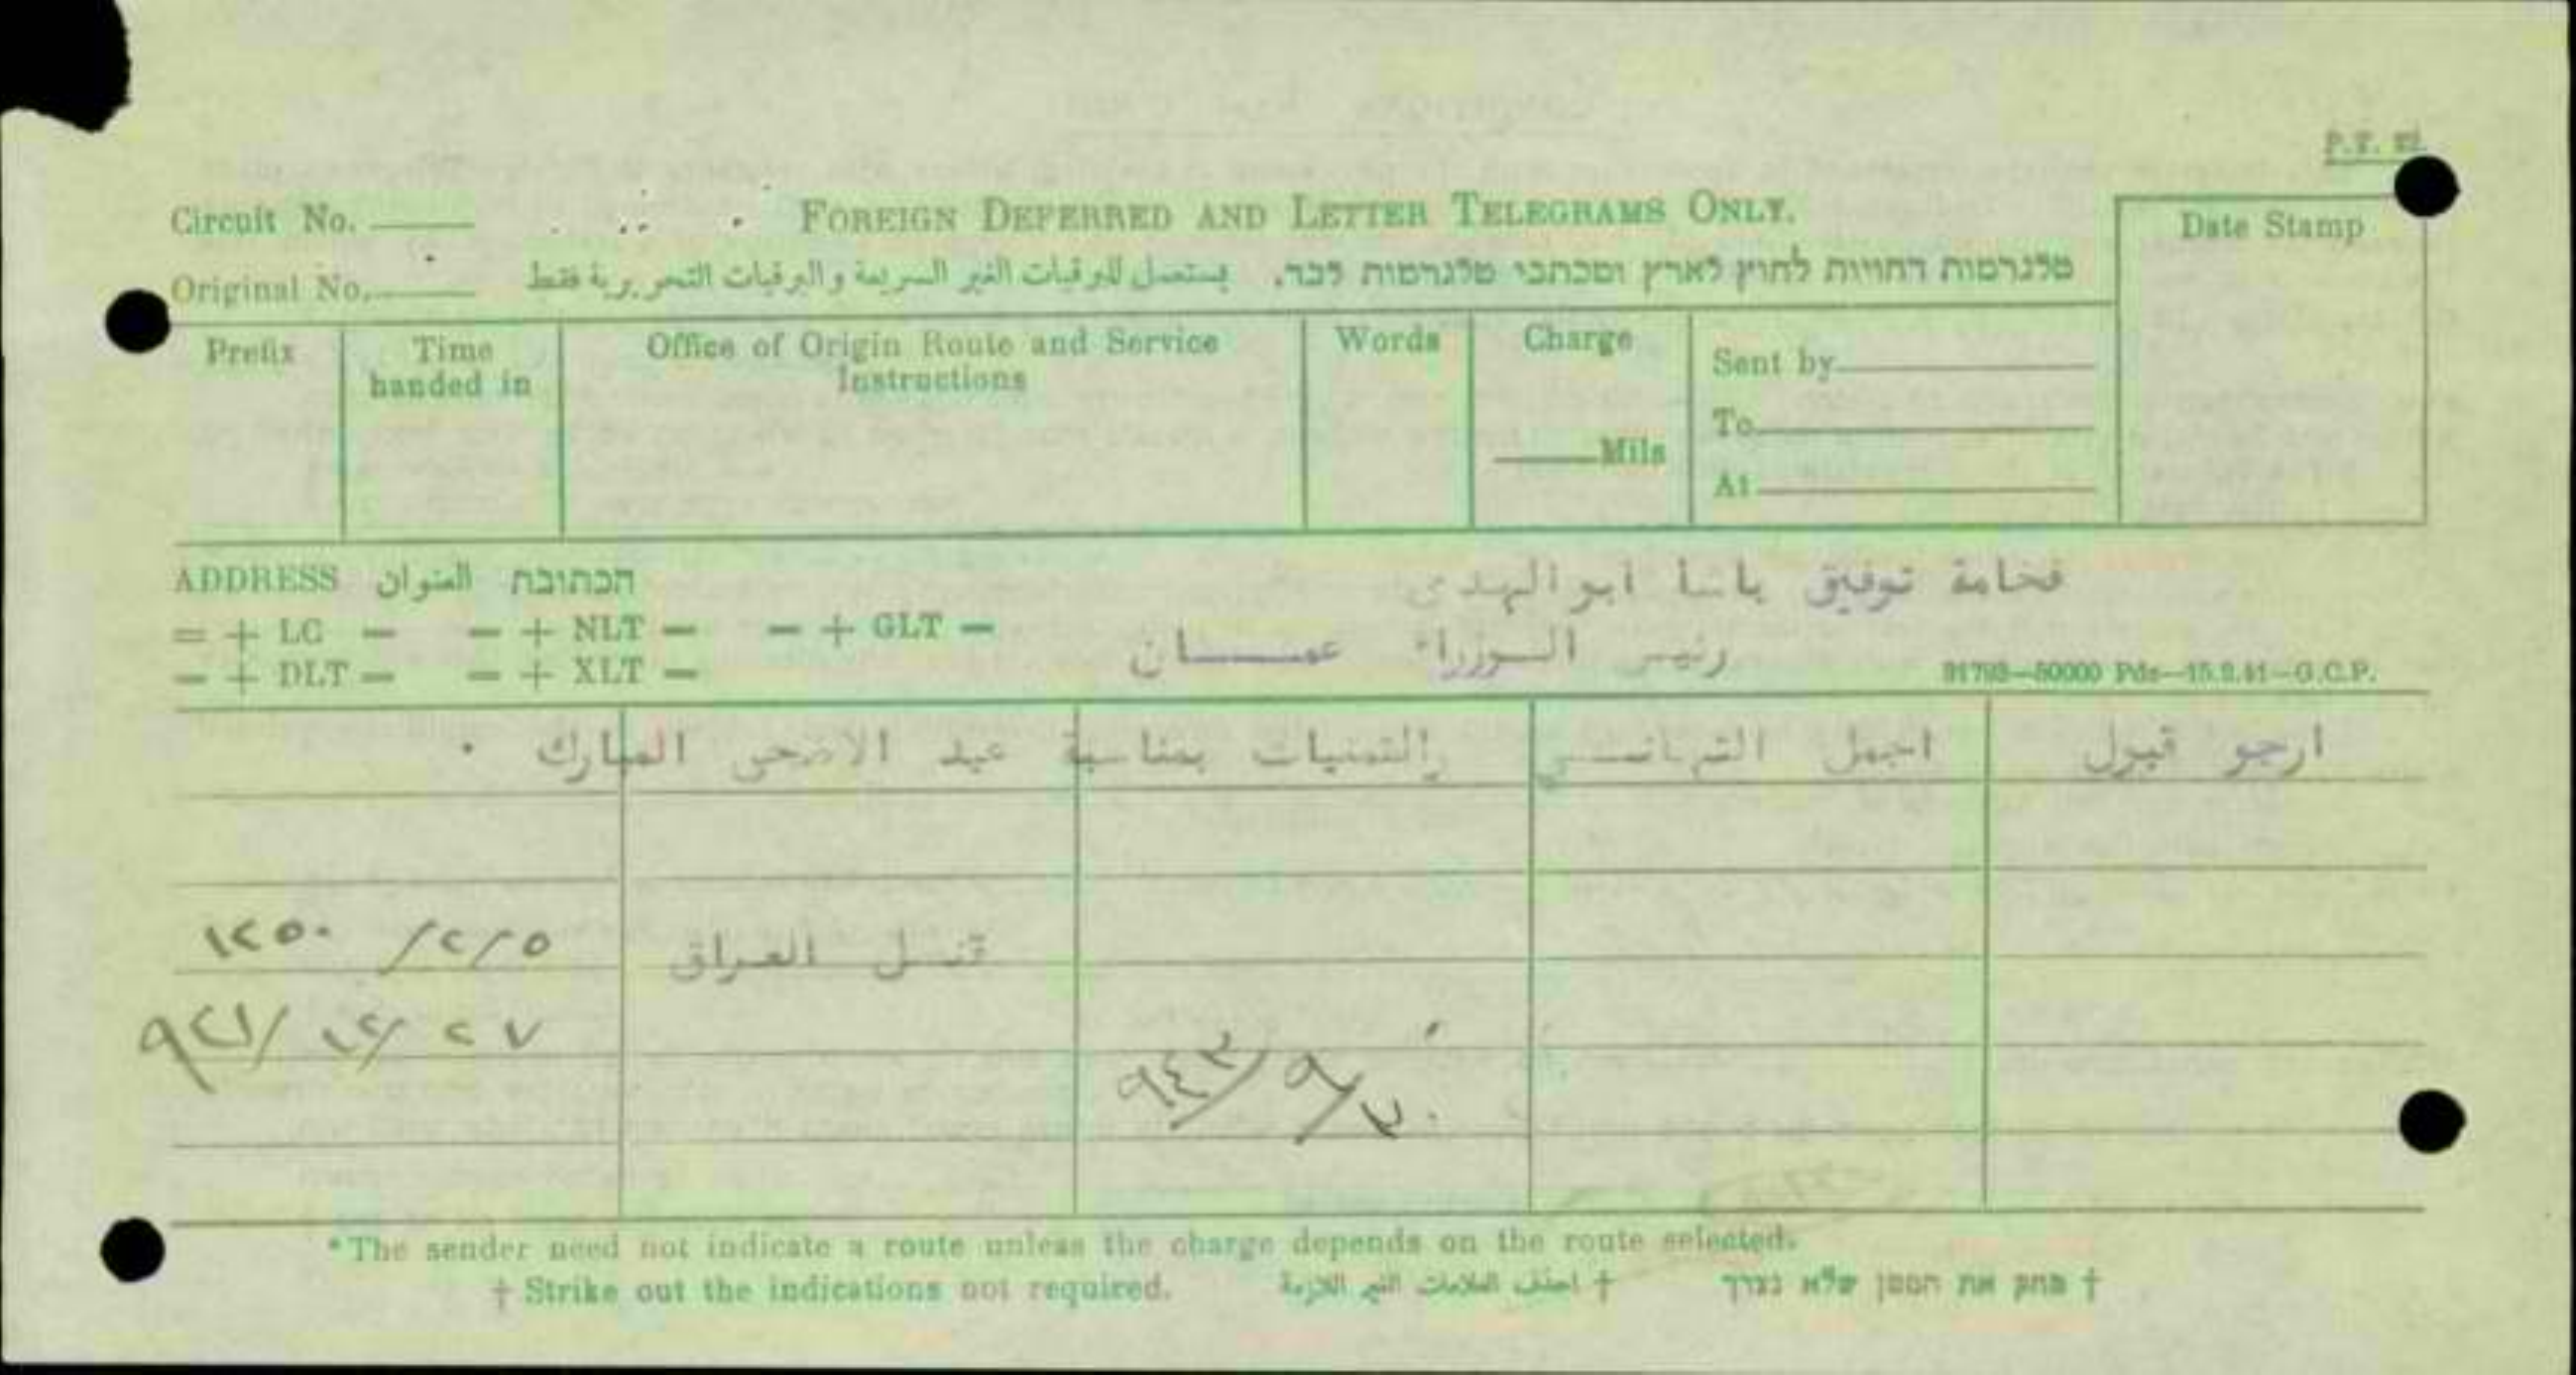 Circuit No.
FOREIGN DEFERRED AND LETTER TELEGRAMS ONLY.
Date Stamp
Original No.
يستعمل للبرقيات الغير السريعة والبرقيات التحريرية فقط
טלגרמות דחויות לחוץ לארץ ומכתבי טלגרמות לבד.
Prefix
Time handed in
Office of Origin Route and Service Instructions
Words
Charge
Mils
Sent by
To
At
ADDRESS العنوان הכתובת
فخامة توفيق باشا ابو الهدى
= + LC — — + NLT — — + GLT —
رئيس الوزراء عمان
— + DLT — — + XLT —
91793—50000 Pds—15.9.41—G.C.P.
ارجو قبول اجمل التهاني والتمنيات بمناسبة عيد الاضحى المبارك .
قنصل العراق
١٢٥٠ /٢/٥
٢٧ /١٢/ ٩٤١
٩٤٣/٩/٢٠
*The sender need not indicate a route unless the charge depends on the route selected.
† Strike out the indications not required.
† احذف العلامات الغير اللازمة
† מחק את הסמן שלא נצרך